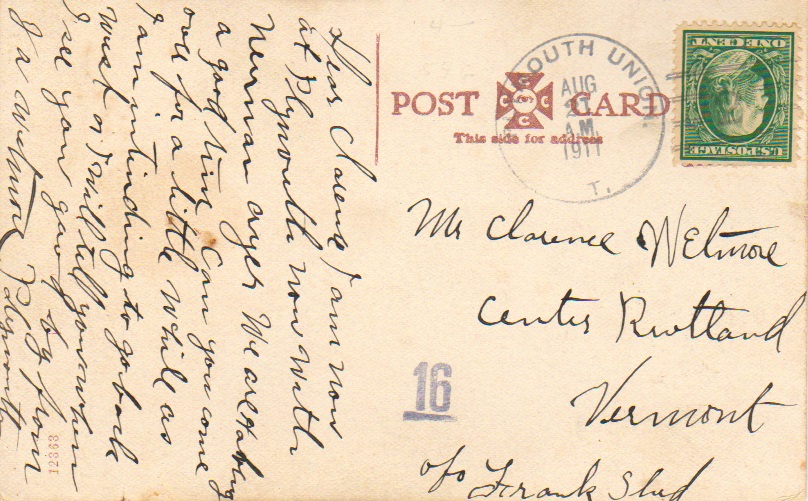 Dear Clarence I am now
at Plymouth now with
Newman ayer We are having
a good time Can you come
over for a little while as
I am intinding to go back
West or I will tell you when
I see you good by from
J a Welmore Plymouth
12363
POST CARD
This side for address
SOUTH UNION.
AUG
21
AM
1911
T.
ONE CENT
U.S. POSTAGE
Mr Clarence Welmore
Center Rutland
Vermont
16
c/o Frank